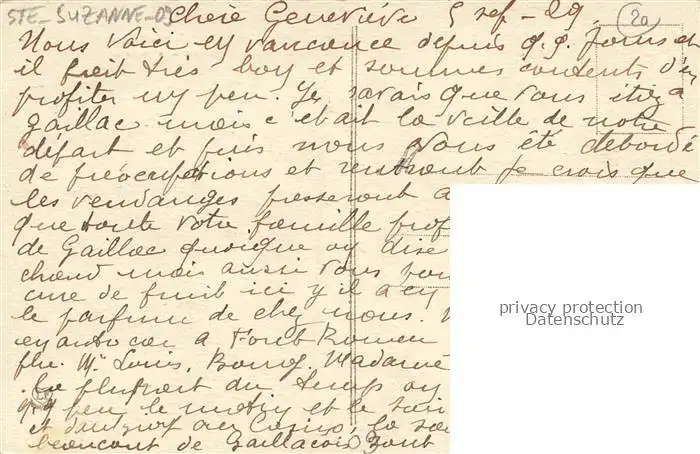 STE_SUZANNE_09
Chère Geneviève 5 sep - 29
2a
Nous voici en vancance depuis q.q. jours et
il fait très bon et sommes contents d'en
profiter un peu. Je savais que vous étiez à
Gaillac mais c'était la veille de notre
départ et puis nous vous été débordé
de préocupations et je crois que
les vendanges passeront
que toute votre famille prof
de Gaillac quoique on dise
chaud mais aussi vous
cure de fruit ici y il a en
le parfum de chez nous.
en auto car a Font Romeu
Mr Louis, Bourg, Madame
La plupart du temps on
peu le matin et le soir
et au Casino, la
beaucoup de Gaillacois sont
privacy protection
Datenschutz